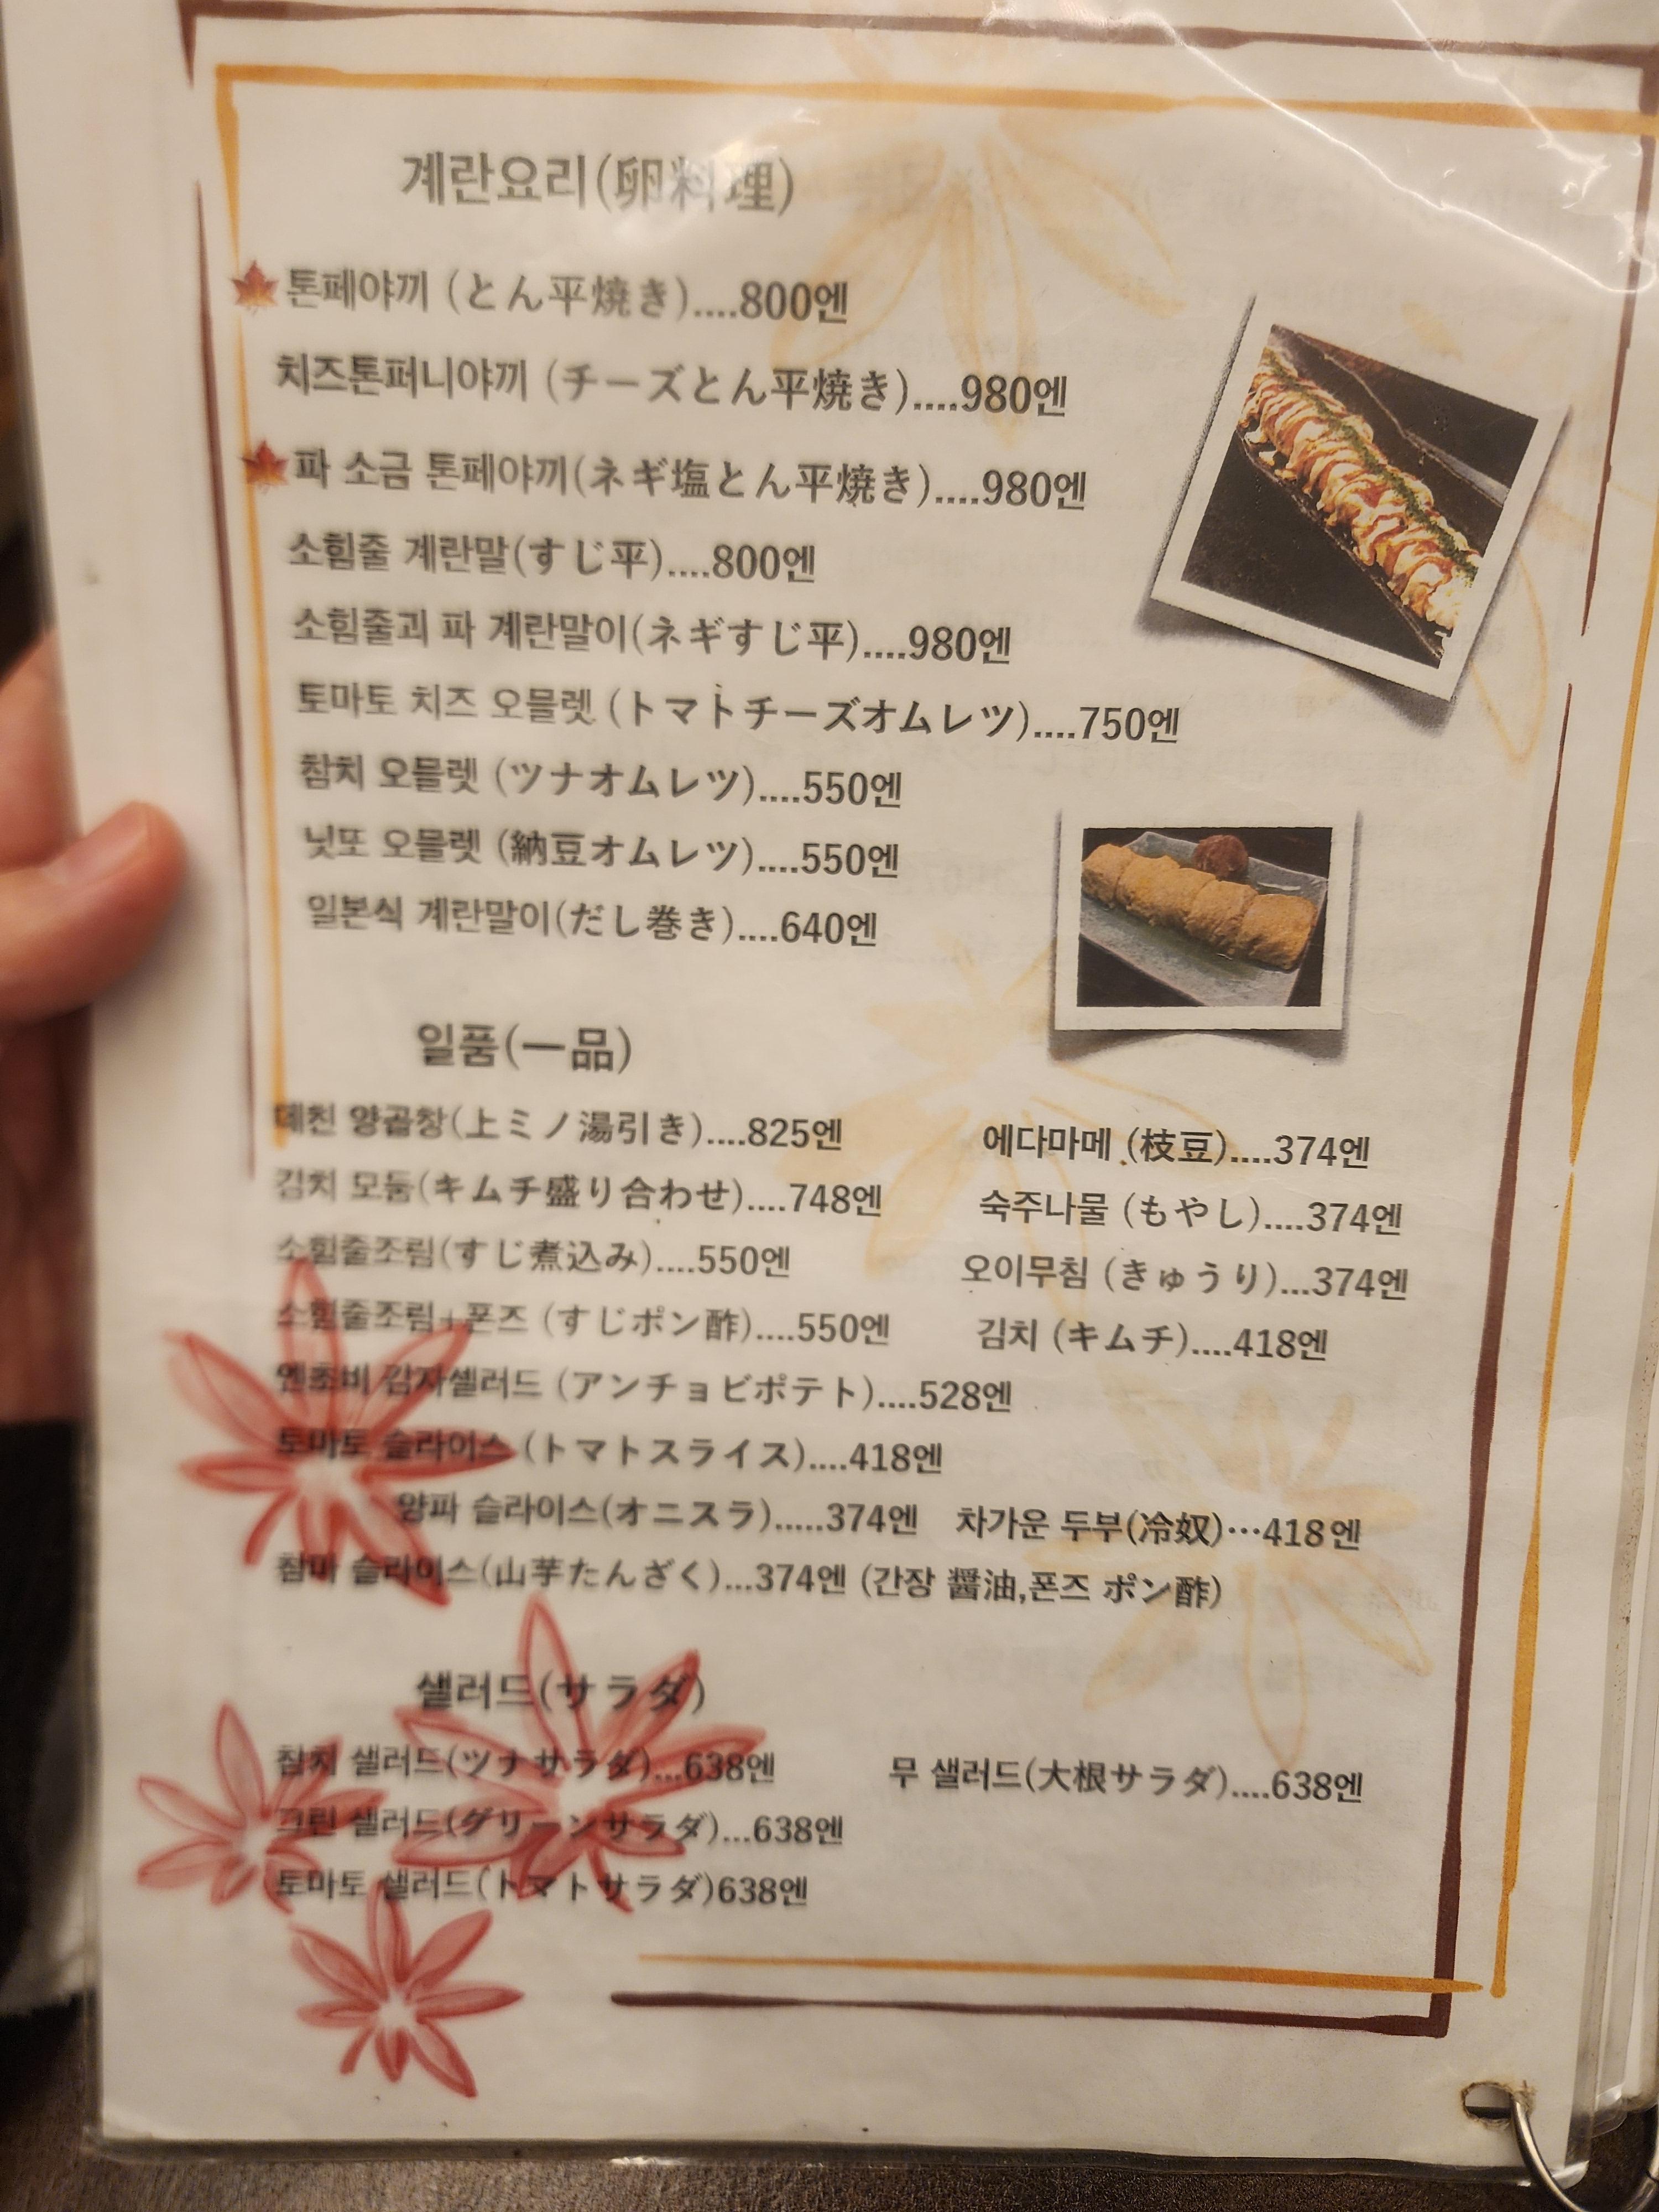 계란요리(卵料理)
톤페야끼 (とん平焼き)....800엔
치즈톤퍼니야끼 (チーズとん平焼き)....980엔
파 소금 톤페야끼(ネギ塩とん平焼き)....980엔
소힘줄 계란말(すじ平)....800엔
소힘줄괴 파 계란말이(ネギすじ平)....980엔
토마토 치즈 오믈렛 (トマトチーズオムレツ)....750엔
참치 오믈렛 (ツナオムレツ)....550엔
닛또 오믈렛 (納豆オムレツ)....550엔
일본식 계란말이(だし巻き)....640엔
일품(一品)
데친 양곱창(上ミノ湯引き)....825엔
에다마메 (枝豆)....374엔
김치 모둠(キムチ盛り合わせ)....748엔
숙주나물 (もやし)....374엔
소힘줄조림(すじ煮込み)....550엔
오이무침 (きゅうり)...374엔
소힘줄조림+폰즈 (すじポン酢)....550엔
김치 (キムチ)....418엔
엔초비 감자샐러드 (アンチョビポテト)....528엔
토마토 슬라이스 (トマトスライス)....418엔
양파 슬라이스(オニスラ).....374엔
차가운 두부(冷奴)…418엔
참마 슬라이스(山芋たんざく)...374엔 (간장 醤油,폰즈 ポン酢)
샐러드(サラダ)
참치 샐러드(ツナサラダ)...638엔
무 샐러드(大根サラダ)....638엔
그린 샐러드(グリーンサラダ)...638엔
토마토 샐러드(トマトサラダ)638엔